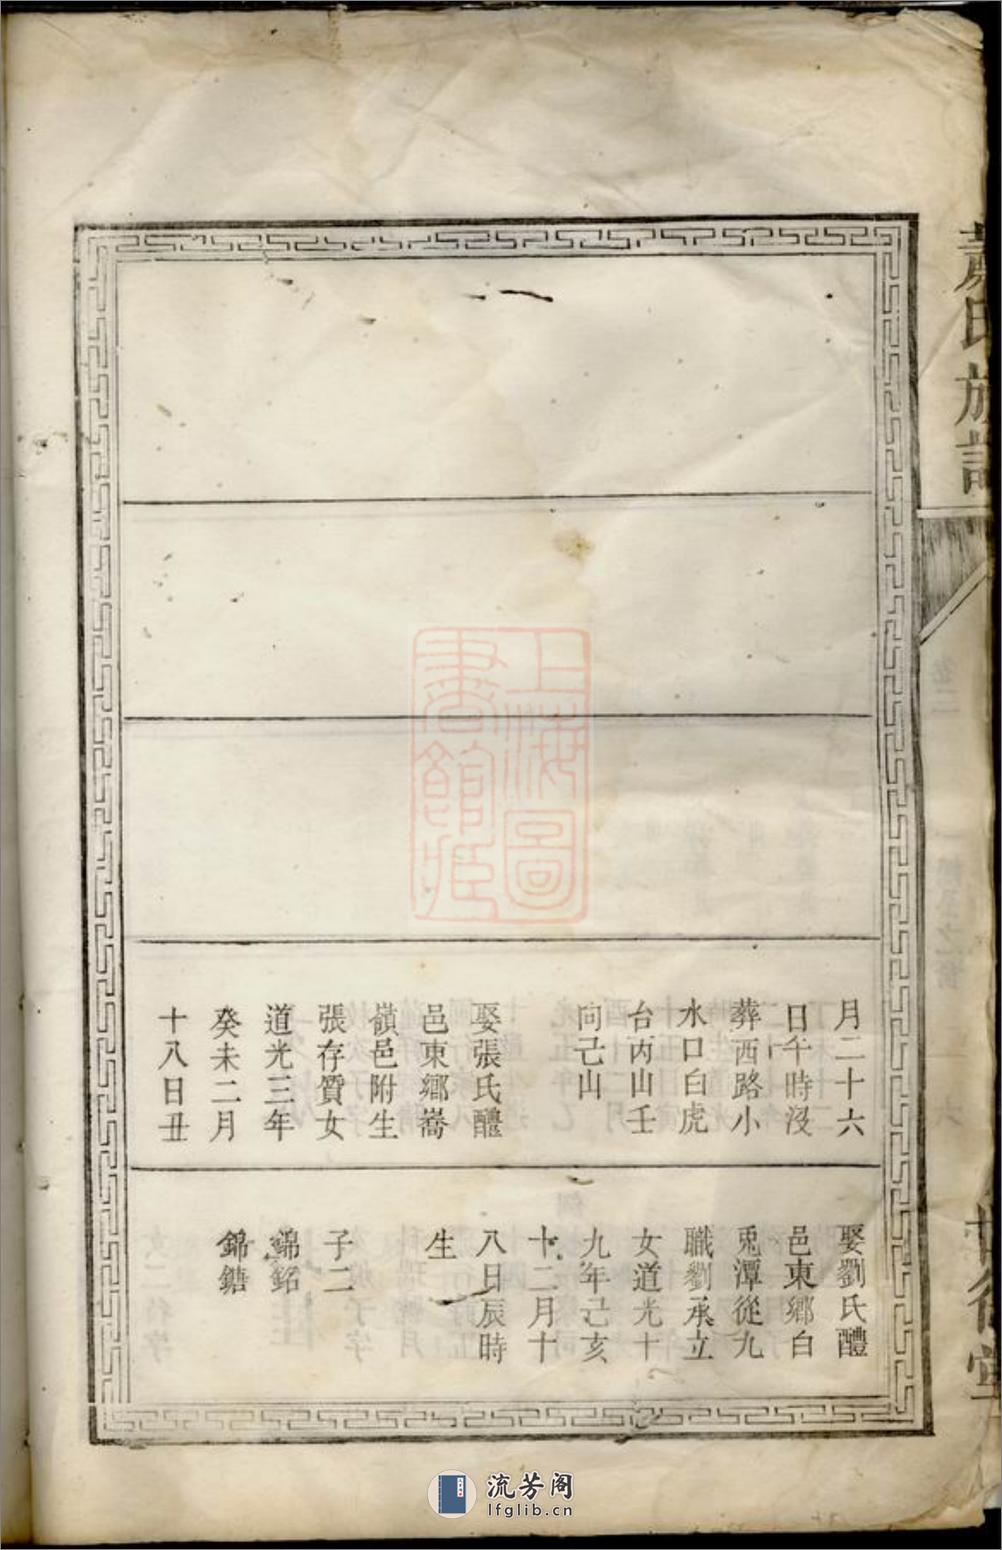 蕭氏族譜
月二十六
日午時沒
葬西路小
水口白虎
台丙山壬
向己山
娶張氏醴
邑東鄉蕎
嶺邑附生
張存質女
道光三年
癸未二月
十八日丑
娶劉氏醴
邑東鄉白
兎潭從九
職劉承立
女道光十
九年己亥
十二月十
八日辰時
生
子二
錦銘
錦鎕
上海圖
書館藏
流芳阁
lfglib.cn